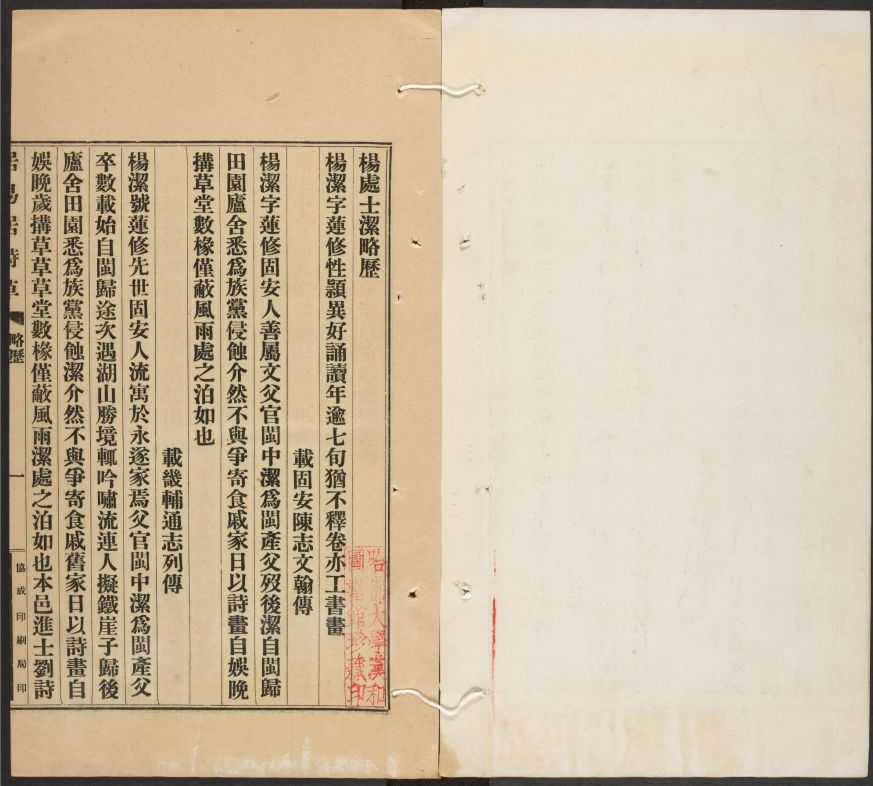 楊處士潔略歷
楊潔字蓮修性穎異好誦讀年逾七旬猶不釋卷亦工書畫
載固安陳志文翰傳
楊潔字蓮修固安人善屬文父官閩中潔爲閩產父歿後潔自閩歸
田園廬舍悉爲族黨侵蝕介然不與爭寄食戚家日以詩畫自娛晚
搆草堂數椽僅蔽風雨處之泊如也
載畿輔通志列傳
楊潔號蓮修先世固安人流寓於永遂家焉父官閩中潔爲閩產父
卒數載始自閩歸途次遇湖山勝境輒吟嘯流連人擬鐵崖子歸後
廬舍田園悉爲族黨侵蝕潔介然不與爭寄食戚舊家日以詩畫自
娛晚歲搆草草草堂數椽僅蔽風雨潔處之泊如也本邑進士劉詩
居易居詩草
略歷
一
協成印刷局印
哈佛大學漢和
圖書館珍藏印